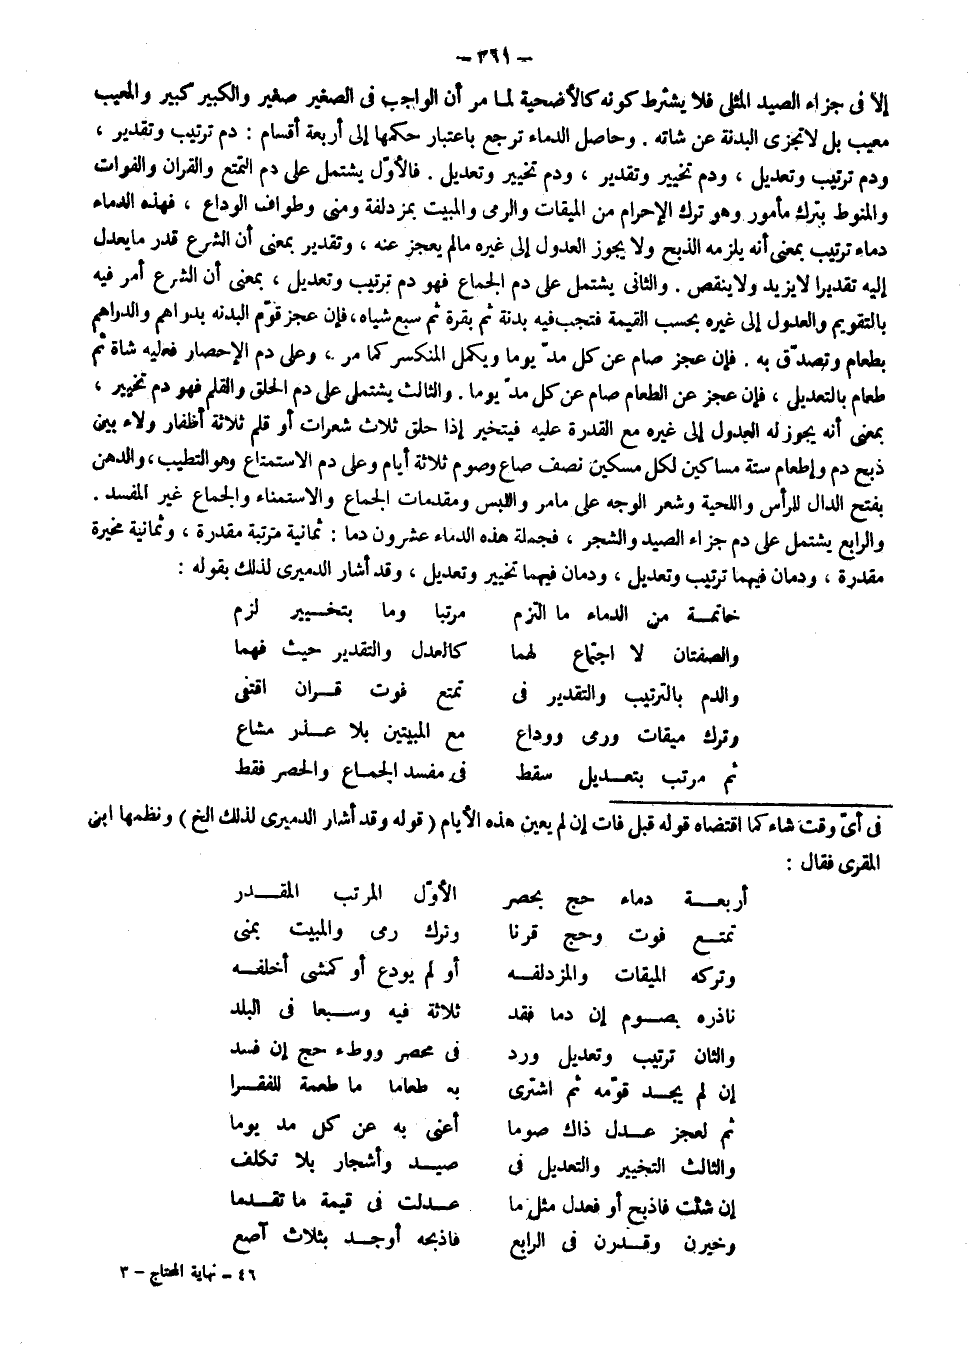 - ٣٦١ -
إلا فى جزاء الصيد المثلى فلا يشترط كونه كالأضحية لما مر أن الواجب فى الصغير صغير والكبير كبير والمعيب
معيب بل لا تجزى البدنة عن شاته . وحاصل الدماء ترجع باعتبار حكمها إلى أربعة أقسام : دم ترتيب وتقدير ،
ودم ترتيب وتعديل ، ودم تخيير وتقدير ، ودم تخيير وتعديل . فالأوّل يشتمل على دم التمتع والقران والفوات
والمنوط بترك مأمور وهو ترك الإحرام من الميقات والرمى والمبيت بمزدلفة ومنى وطواف الوداع ، فهذه الدماء
دماء ترتيب بمعنى أنه يلزمه الذبح ولا يجوز العدول إلى غيره مالم يعجز عنه ، وتقدير بمعنى أن الشرع قدر مايعدل
إليه تقديرا لايزيد ولاينقص . والثانى يشتمل على دم الجماع فهو دم ترتيب وتعديل ، بمعنى أن الشرع أمر فيه
بالتقويم والعدول إلى غيره بحسب القيمة فتجب فيه بدنة ثم بقرة ثم سبع شياه ، فإن عجز قوّم البدنه بدراهم والدراهم
بطعام وتصدّق به . فإن عجز صام عن كل مدّ يوما ويكمل المنكسر كما مر ، وعلى دم الإحصار فعليه شاة ثم
طعام بالتعديل ، فإن عجز عن الطعام صام عن كل مدّ يوما . والثالث يشتمل على دم الحلق والقلم فهو دم تخيير ،
بمعنى أنه يجوز له العدول إلى غيره مع القدرة عليه فيتخير إذا حلق ثلاث شعرات أو قلم ثلاثة أظفار ولاء بين
ذبح دم وإطعام ستة مساكين لكل مسكين نصف صاع وصوم ثلاثة أيام وعلى دم الاستمتاع وهو التطيب ، والدهن
بفتح الدال للرأس واللحية وشعر الوجه على مامر واللبس ومقدمات الجماع والاستمناء والجماع غير المفسد .
والرابع يشتمل على دم جزاء الصيد والشجر ، فجملة هذه الدماء عشرون دما : ثمانية مرتبة مقدرة ، وثمانية مخيرة
مقدرة ، ودمان فيهما ترتيب وتعديل ، ودمان فيهما تخيير وتعديل ، وقد أشار الدميرى لذلك بقوله :
خاتمـة من الدماء ما التزم مرتبا وما بتخـيير لزم
والصفتان لا اجتماع لهما كالعدل والتقدير حيث فهما
والدم بالترتيب والتقدير فى تمتع فوت قـران اقتفى
وترك ميقات ورمى ووداع مع المبيتين بلا عـذر مشاع
ثم مرتب بتعـديل سقط فى مفسد الجمـاع والحصر فقط
فى أىّ وقت شاء كما اقتضاه قوله قبل فات إن لم يعين هذه الأيام ( قوله وقد أشار الدميرى لذلك الخ ) ونظمها ابن
المقرى فقال :
أربعـة دماء حج بحصر الأوّل المرتب المقـدر
تمتـع فوت وحج قرنا وترك رمى والمبيت بمنى
وتركه الميقات والمزدلفـه أو لم يودع أو كمشى أخلفـه
ناذره يصـوم إن دما فقد ثلاثة فيه وسـبعا فى البلد
والثان ترتيب وتعديل ورد فى محصر ووطء حج إن فسد
إن لم يجـد قوّمه ثم اشترى به طعاما ما طعمة للفقـرا
ثم لعجز عـدل ذاك صوما أعنى به عن كل مد يوما
والثالث التخيير والتعديل فى صيـد وأشجار بلا تكلف
إن شئت فاذبح أو فعدل مثل ما عـدلت فى قيمة ما تقـدما
وخيرن وقـدرن فى الرابع فاذبحه أو جـد بثلاث آصع
٤٦ - نهاية المحتاج - ٣